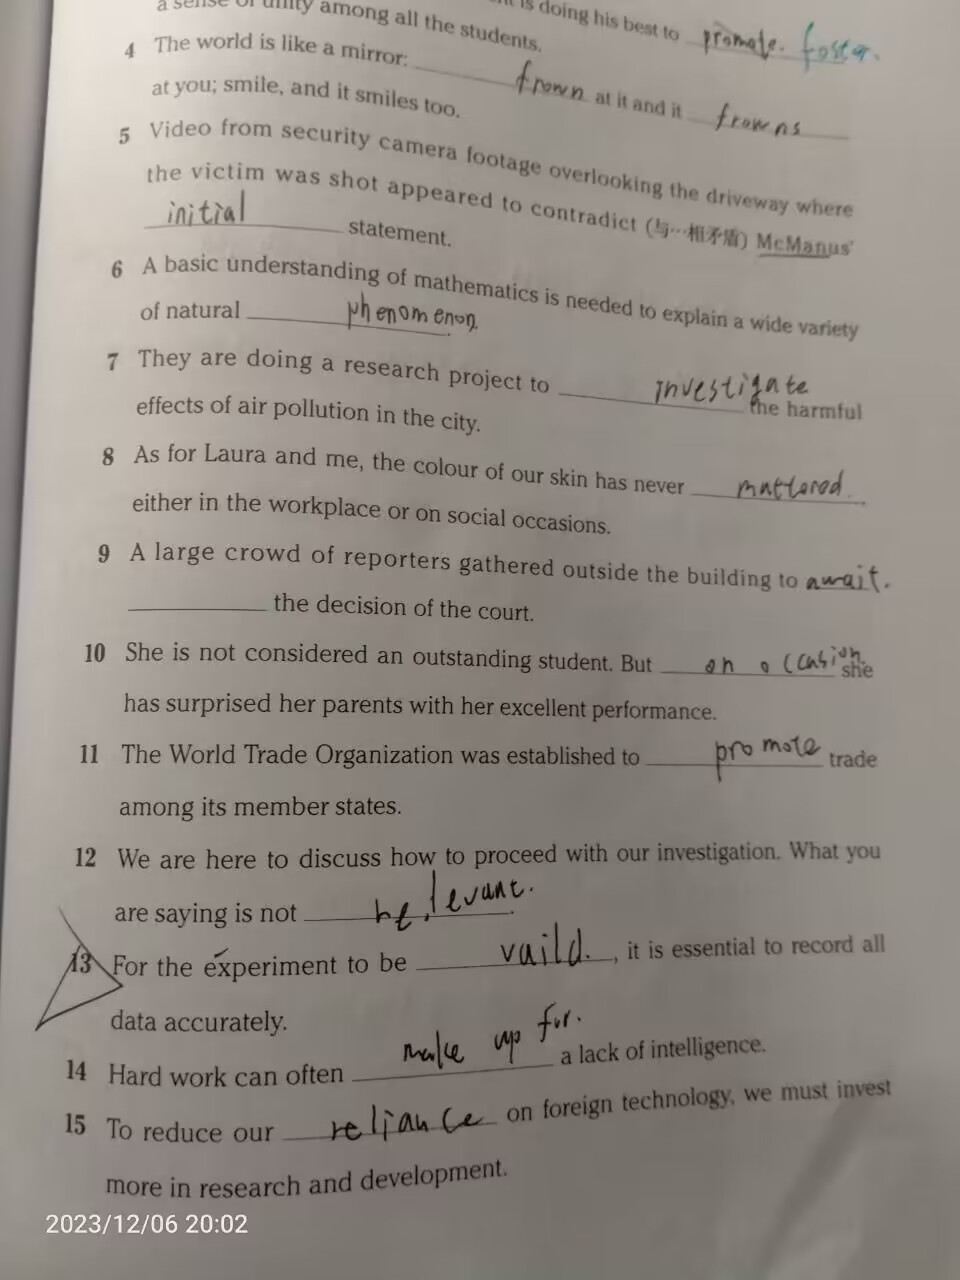 is doing his best to promote. foster.
a sense of unity among all the students.
4 The world is like a mirror: frown at it and it frowns
at you; smile, and it smiles too.
5 Video from security camera footage overlooking the driveway where
the victim was shot appeared to contradict (与…相矛盾) McManus'
initial statement.
6 A basic understanding of mathematics is needed to explain a wide variety
of natural phenomenon.
7 They are doing a research project to investigate the harmful
effects of air pollution in the city.
8 As for Laura and me, the colour of our skin has never mattered.
either in the workplace or on social occasions.
9 A large crowd of reporters gathered outside the building to await.
the decision of the court.
10 She is not considered an outstanding student. But on occasion. she
has surprised her parents with her excellent performance.
11 The World Trade Organization was established to promote trade
among its member states.
12 We are here to discuss how to proceed with our investigation. What you
are saying is not relevant.
13 For the experiment to be vaild., it is essential to record all
data accurately.
14 Hard work can often make up for. a lack of intelligence.
15 To reduce our reliance on foreign technology, we must invest
more in research and development.
2023/12/06 20:02